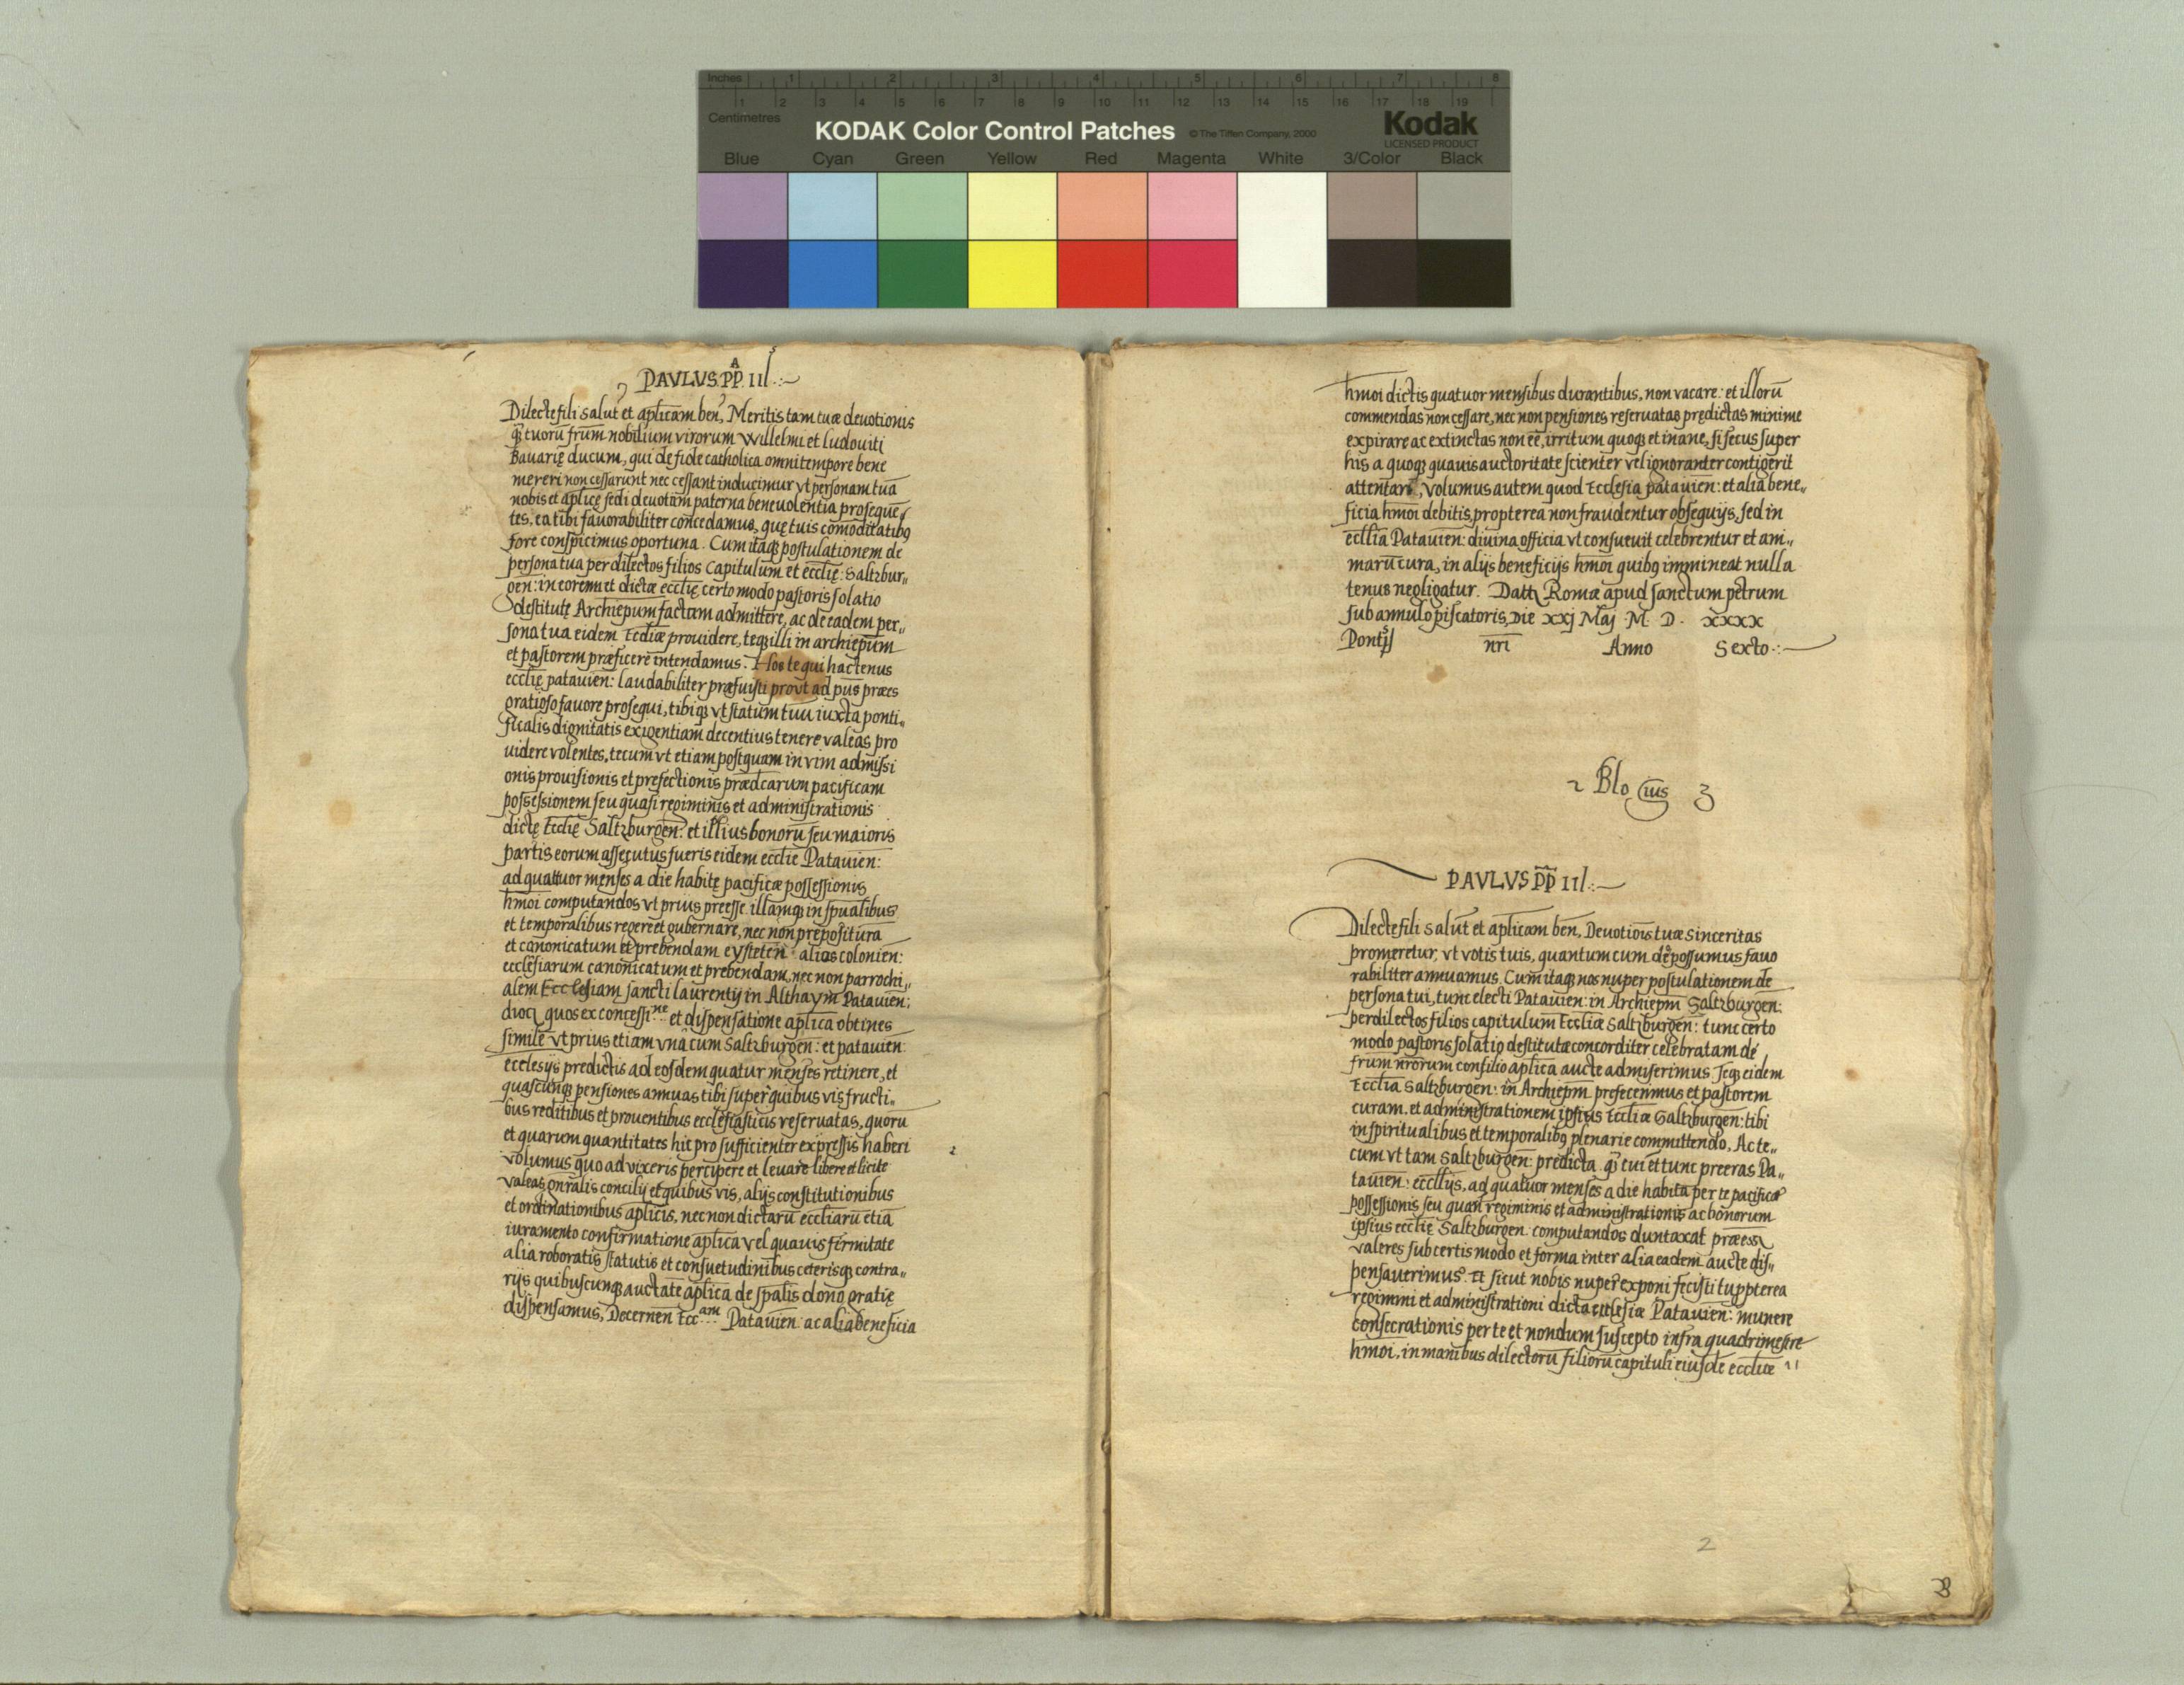 Inches 1 2 3 4 5 6 7 8
1 2 3 4 5 6 7 8 9 10 11 12 13 14 15 16 17 18 19
Centimetres
KODAK Color Control Patches © The Tiffen Company, 2000 Kodak
LICENSED PRODUCT
Blue Cyan Green Yellow Red Magenta White 3/Color Black
PAVLVS PP III
Dilecte fili salut̄ et apl̄icam ben̄, Meritis tam tuæ deuotionis
q̄ tuorū fr̄um nobilium virorum Willelmi et Ludouici
Bauarię ducum, qui de fide catholica omni tempore bene
mereri non cessarunt nec cessant inducimur vt personam tuā
nobis et aplicę sedi deuotam paterna beneuolentia prosequē
tes, ea tibi fauorabiliter concedamus, quę tuis comoditatibꝫ
fore conspicimus oportuna. Cum itaqꝫ postulationem de
persona tua per dilectos filios Capitulum et eccl̄ię: Saltzbur„
gen: in eorem et dictæ eccl̄ię certo modo pastoris solatio
destitutę Archiep̄um factam admittere, ac de eadem per„
sona tua eidem Eccl̄iæ prouidere, teqꝫ illi in archiep̄um
et pastorem præficere intendamus. Hos te qui hactenus
eccl̄ię patauien: laudabiliter præfuisti prout ad pn̄s præes
gratioso fauore prosequi, tibiqꝫ vt statum tuū iuxta ponti„
ficalis dignitatis exigentiam decentius tenere valeas pro
uidere volentes, tecum vt etiam postquam in vim admissi
onis prouisionis et prefectionis prædcarum pacificam
possessionem seu quasi regiminis et administrationis
dictę Eccl̄ię Saltzburgen: et illius bonorū seu maioris
partis eorum assecutus fueris eidem eccl̄ie Patauien:
ad quattuor menses a die habitę pacificæ possessionis
hm̄oi computandos vt prius preesse illamqꝫ in sp̄ualibus
et temporalibus regere et gubernare, nec non prepositura
et canonicatum et prebendam eysteten: alias colonien:
ecclesiarum canonicatum et prebendam, nec non parrochi„
alem Ecclesiam sancti laurentij in Althaym Patauien:
dioc̄ quos ex concessi.ne et dispensatione aplica obtines
similē vt prius etiam vnā cum Saltzburgen: et patauien:
ecclesijs predictis ad eosdem quatur menses retinere, et
quascunqꝫ pensiones annuas tibi super quibus vis fructi„
bus reditibus et prouentibus ecclesiasticis reseruatas, quorū
et quarum quantitates hic pro sufficienter expressis haberi
volumus quo ad vixeris percipere et leuare libere et licite
valeas, gn̄ralis concilij et quibus vis, alijs constitutionibus
et ordinationibus aplicis, nec non dictarū eccl̄iarū etiā
iuramento confirmatione aplica vel quauis firmitate
alia roboratis statutis et consuetudinibus ceterisqꝫ contra„
rijs quibuscunqꝫ auctate aplica de sp̄alis dono gratię
dispensamus, Decernen̄ Ecc.am Patauien: ac alia beneficia
hm̄oi dictis quatuor mensibus durantibus, non vacare: et illorū
commendas non cessare, nec non pensiones reseruatas prędictas minime
expirare ac extinctas non eē, irritum quoqꝫ et inane, si secus super
his a quoqꝫ quauis auctoritate scienter vel ignoranter contigerit
attentari, volumus autem quod Ecclesia patauien: et alia bene„
ficia hm̄oi debitis propterea non fraudentur obsequijs, sed in
eccl̄lia Patauien: diuina officia vt consueuit celebrentur et ani„
marū cura, in alijs beneficijs hm̄oi quibꝫ immineat nulla
tenus negligatur. Datt. Romæ apud sanctum petrum
sub annulo piscatoris, Die xxj Maj M. D. xxxx
Pont̄s nr̄i Anno Sexto
Blosius
PAVLVS PP III
Dilecte fili salut̄ et aplicam ben̄, Deuotiōis tuæ sinceritas
promeretur, vt votis tuis, quantum cum deo possumus fauo
rabiliter annuamus. Cum itaqꝫ nos nuper postulationem de
persona tui, tunc electi Patauien: in Archiepm̄ Saltzburgen:
per dilectos filios capitulum Eccliæ Saltzburgen: tunc certo
modo pastoris solatio destitutæ concorditer celebratam de
frum nrorum consilio aplica aucte admiserimus Teqꝫ eidem
Ecclia Saltzburgen: in Archiepm̄ prefecerimus et pastorem
curam et administrationem ipsius Eccliæ Saltzburgen: tibi
in spiritualibus et temporalibꝫ plenarie committendo. Ac te„
cum vt tam Saltzburgen: predicta q̄ cui et tunc preeras Pa„
tauien: eccl̄ijs, ad quatuor menses a die habita per te pacificæ
possessionis seu quasi regiminis et administrationis ac bonorum
ipsius ecclię Saltzburgen: computandos duntaxat præesse
valeres sub certis modo et forma inter alia eadem aucte dis„
pensauerimus. Et sicut nobis nuper exponi fecisti tu ppterea
regimini et administrationi dicta ecclesiæ Patauien: munere
consecrationis per te et nondum suscepto infra quadrimestre
hm̄oi, in manibus dilectorū filiorū capituli eiusdē eccliæ
2
8